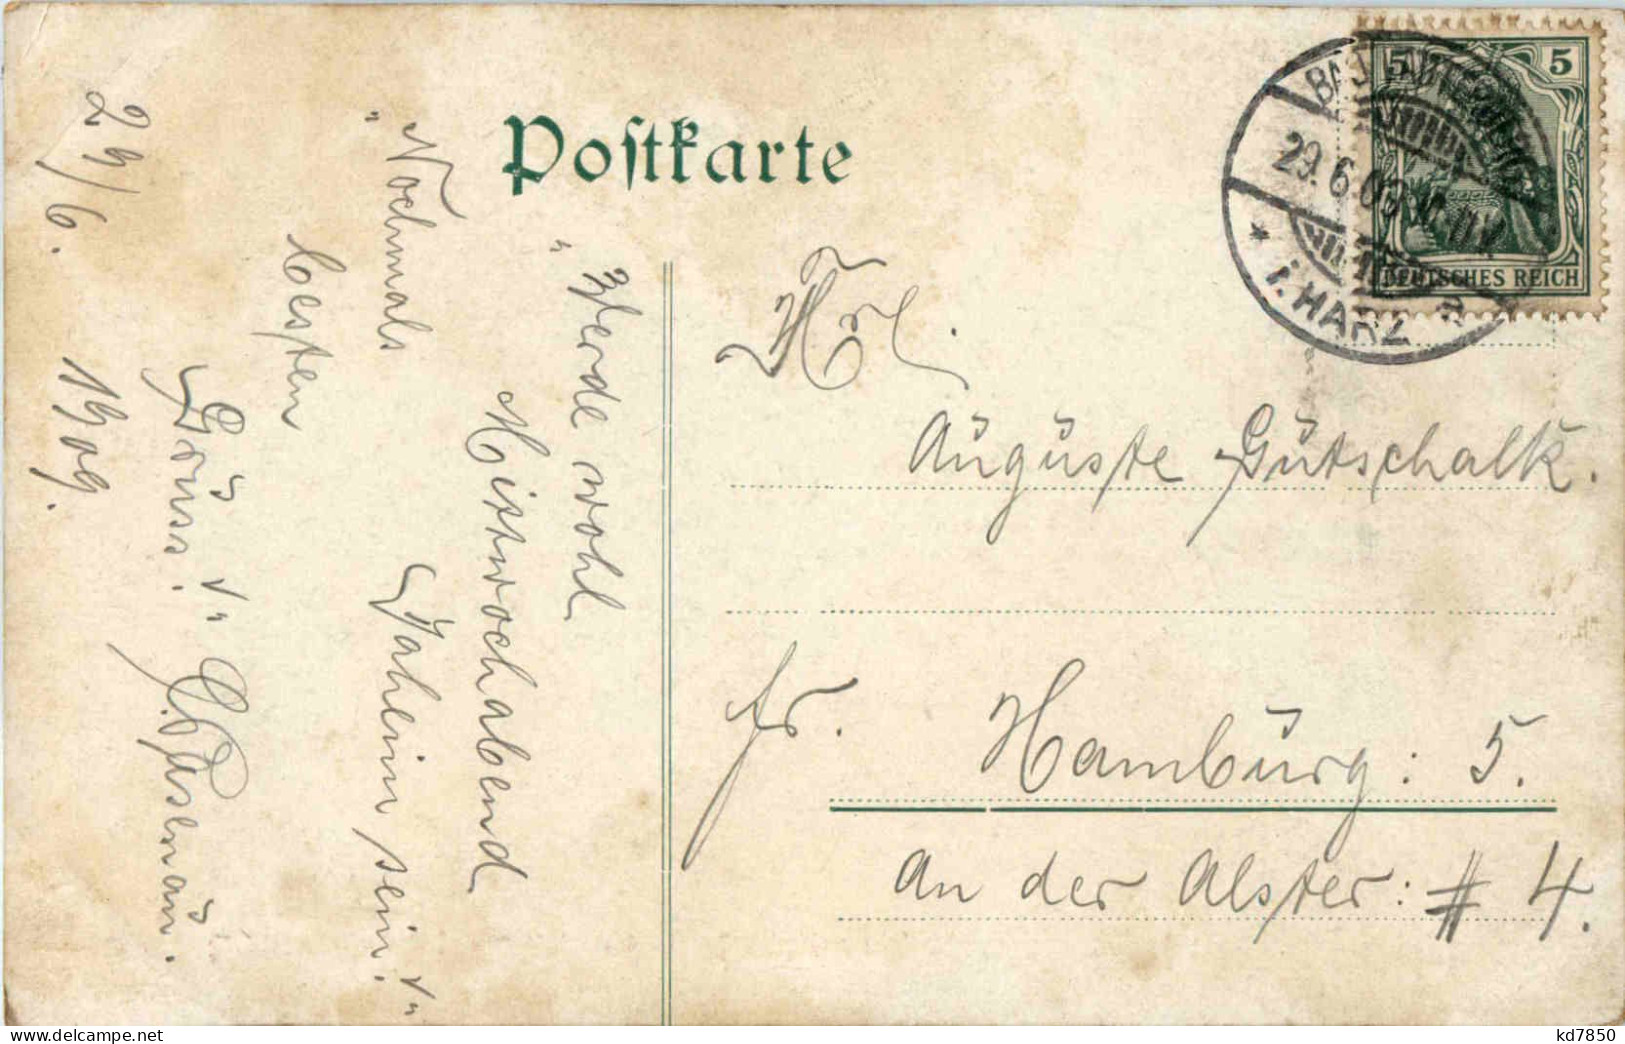 Postkarte
5 5
DEUTSCHES REICH
BAD LAUTERBERG
29.6.09
* i. HARZ *
Frl.
Auguste Gutschalk.
fr. Hamburg: 5.
An der Alster: # 4.
"Werde wohl
Mittwochabend
Dahein sein. "
"Nochmals
besten
Gruss. v.
29/6. 1909.
kd7850